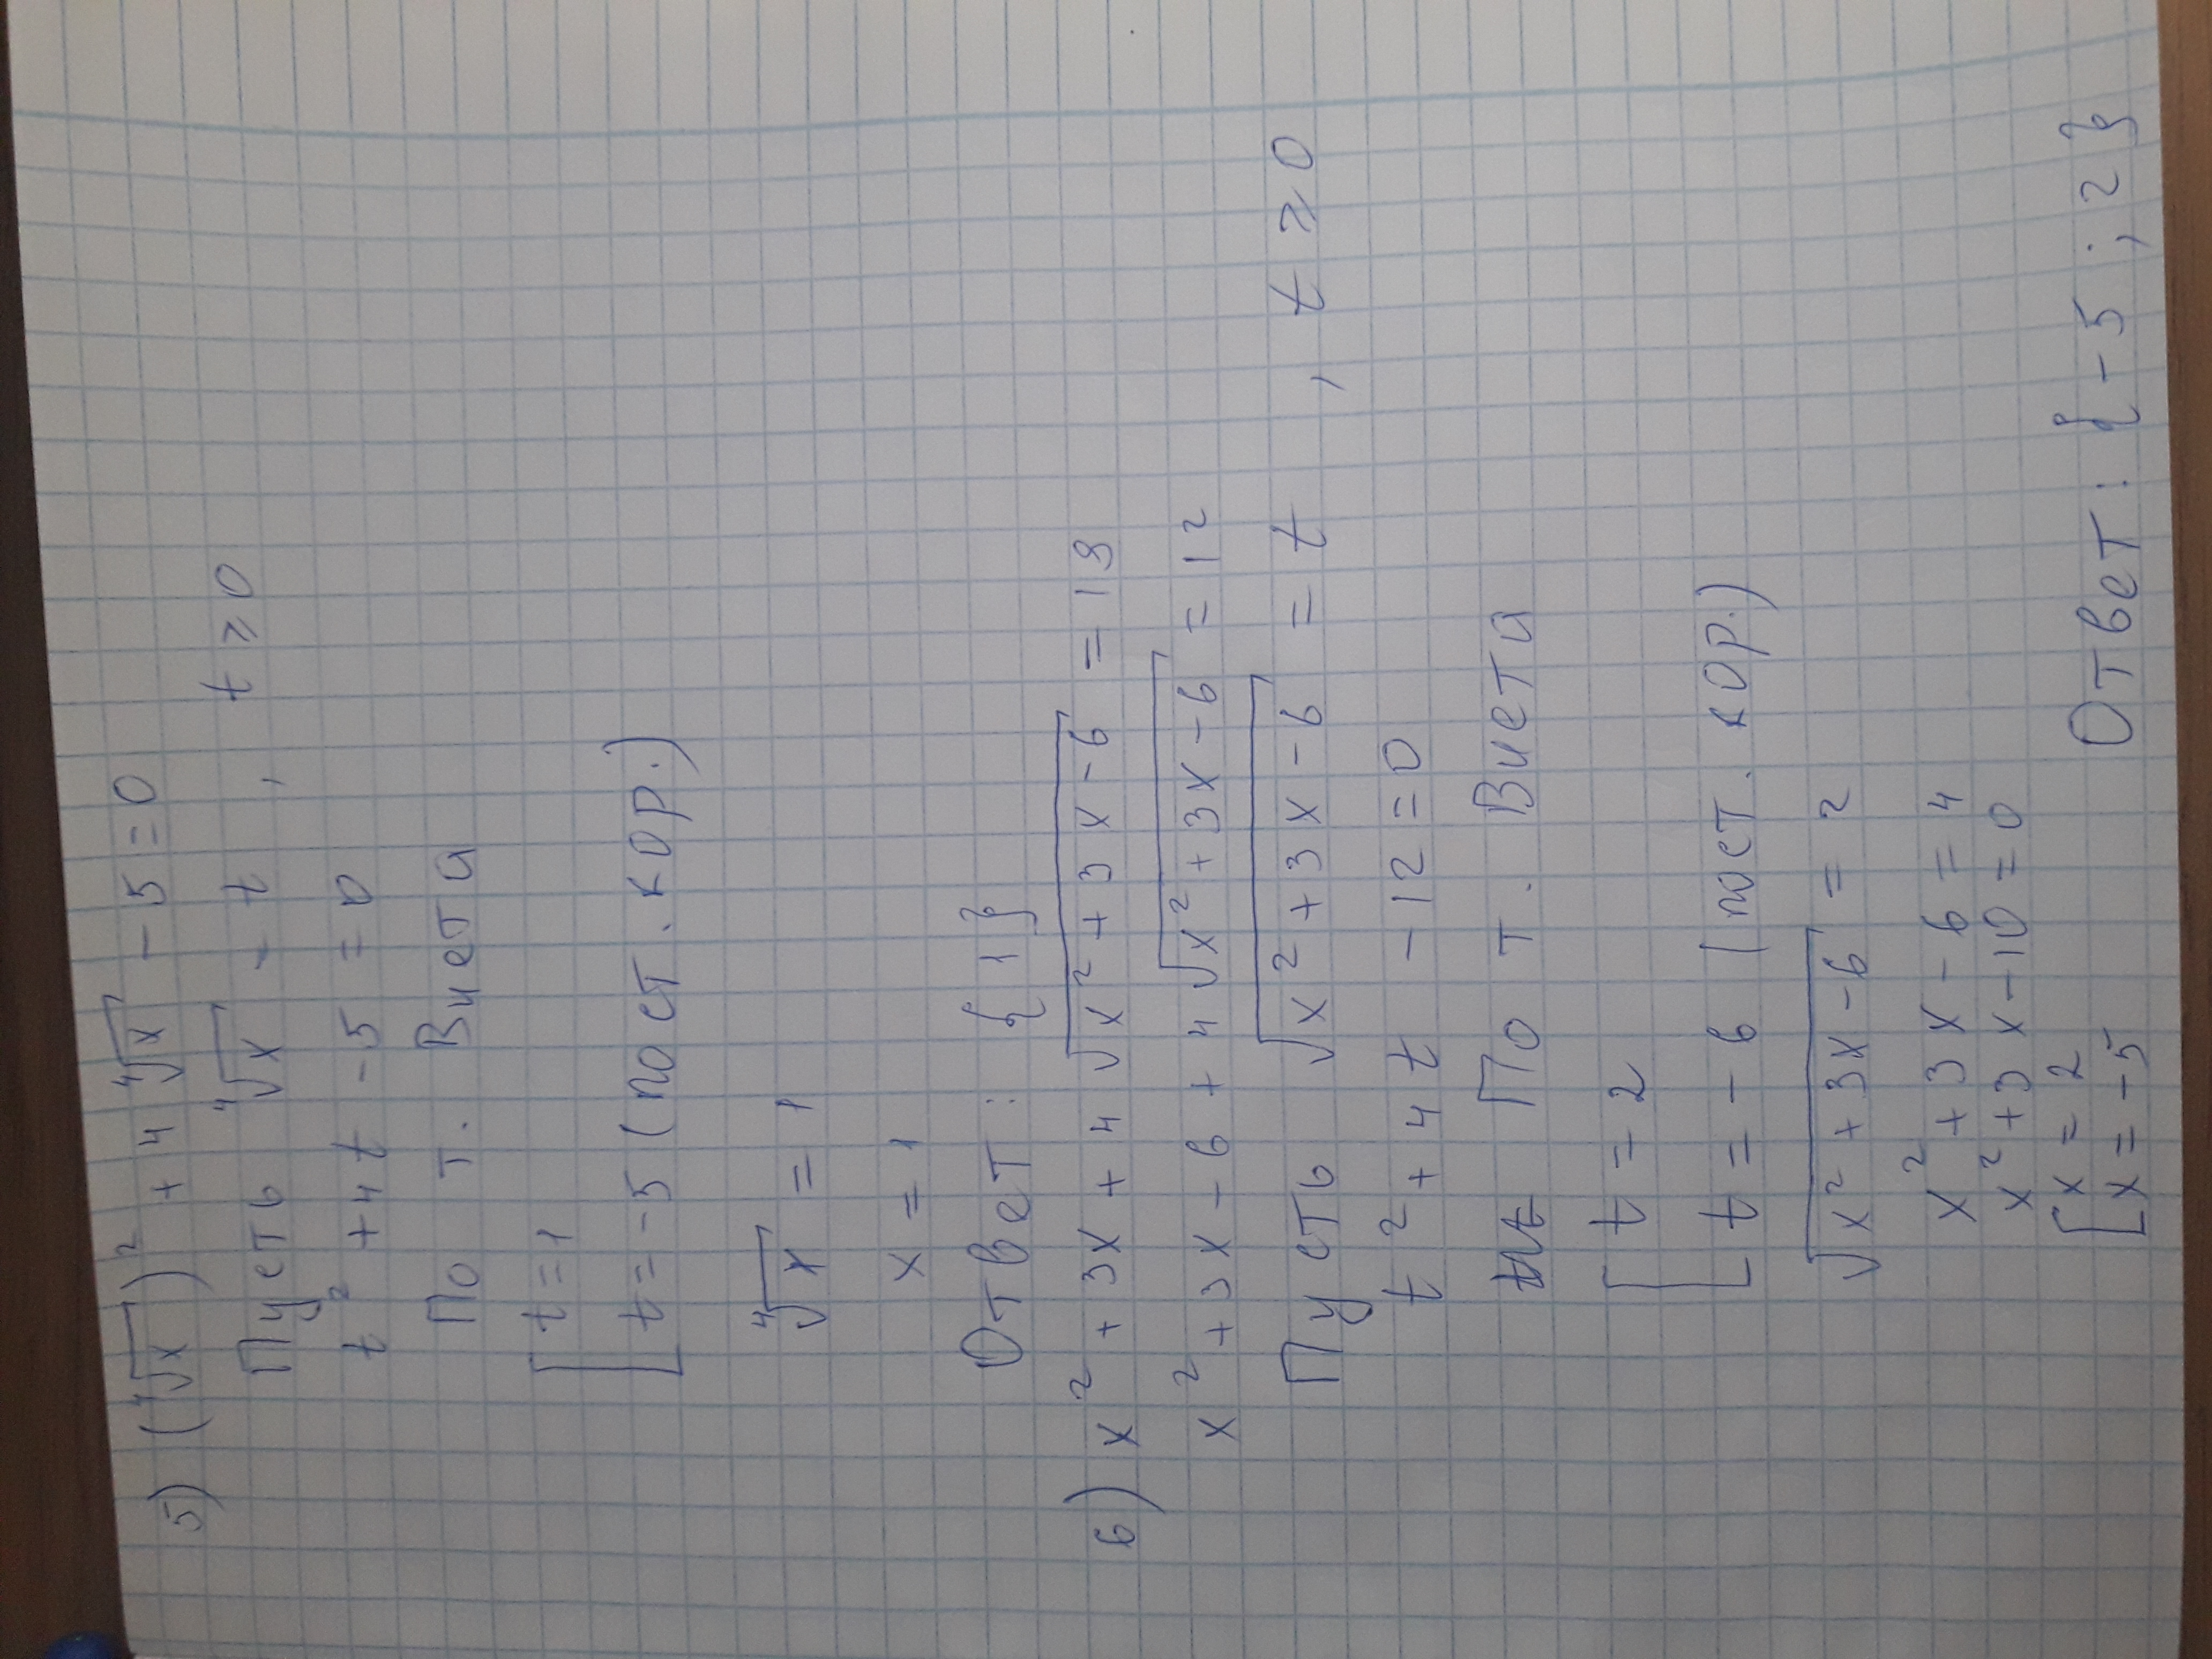 5) (⁴√x)² + 4 ⁴√x - 5 = 0
Пусть ⁴√x - t, t ⩾ 0
t² + 4t - 5 = 0
По т. Виета
[ t = 1
[ t = -5 (пост. кор.)
⁴√x = 1
x = 1
Ответ: {1}
6) x² + 3x + 4 √(x² + 3x - 6) = 18
x² + 3x - 6 + 4 √(x² + 3x - 6) = 12
Пусть √(x² + 3x - 6) = t, t ⩾ 0
t² + 4t - 12 = 0
По т. Виета
[ t = 2
[ t = - 6 (пост. кор.)
√(x² + 3x - 6) = 2
x² + 3x - 6 = 4
x² + 3x - 10 = 0
[ x = 2
[ x = -5
Ответ: {-5 ; 2}